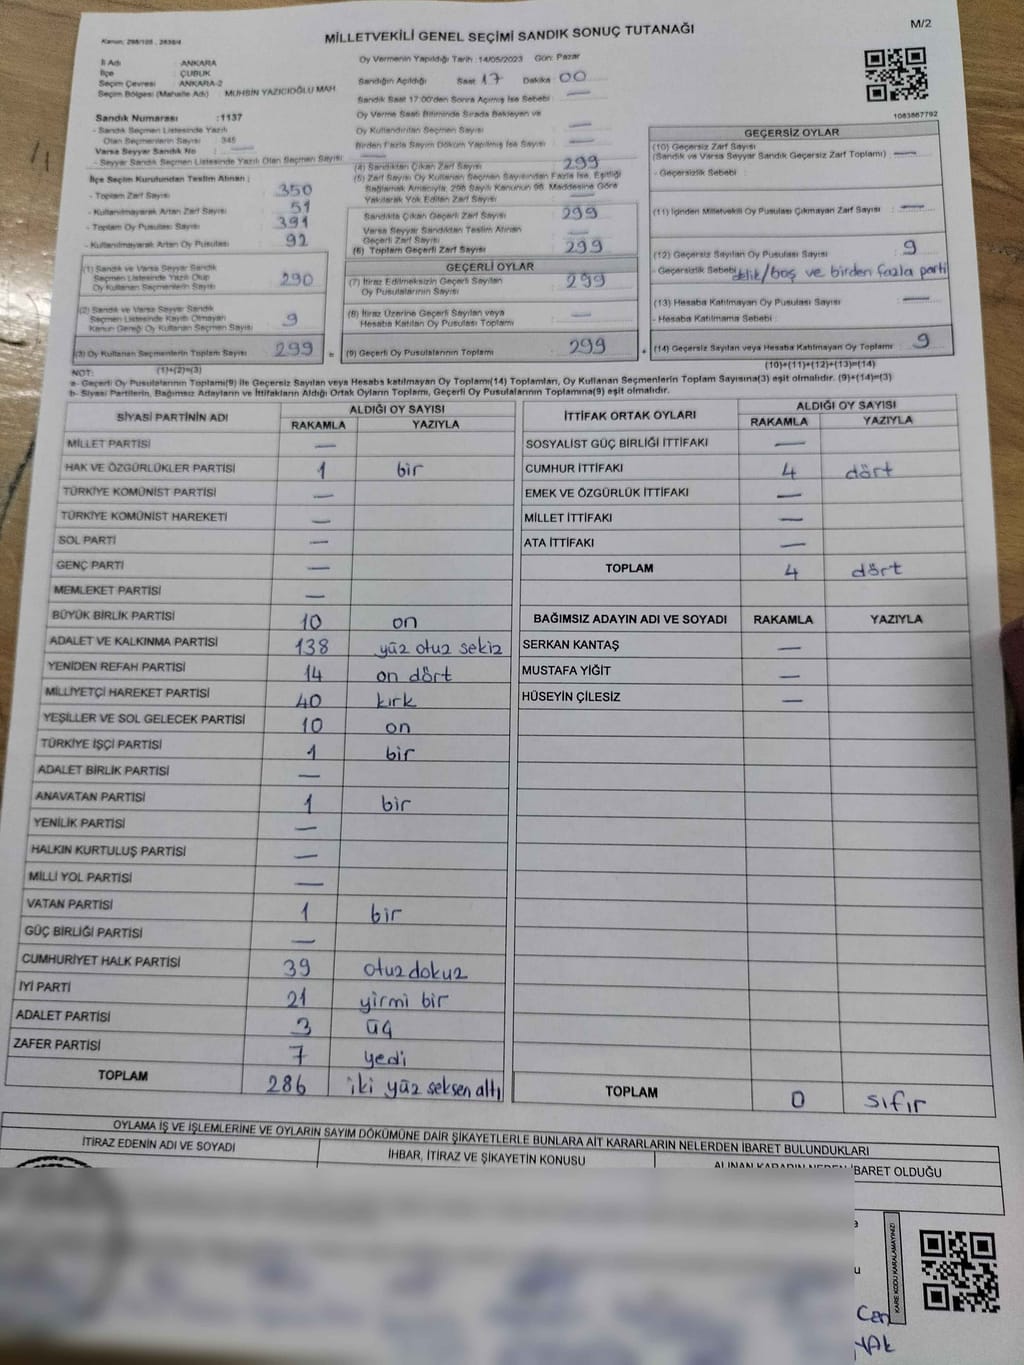 M/2
Kanun: 298/105 , 2839/4
MİLLETVEKİLİ GENEL SEÇİMİ SANDIK SONUÇ TUTANAĞI
İl Adı : ANKARA
İlçe : ÇUBUK
Seçim Çevresi : ANKARA-2
Seçim Bölgesi (Mahalle Adı) : MUHSİN YAZICIOĞLU MAH.
Sandık Numarası :1137
- Sandık Seçmen Listesinde Yazılı
Olan Seçmenlerin Sayısı 345
Varsa Seyyar Sandık No
- Seyyar Sandık Seçmen Listesinde Yazılı Olan Seçmen Sayısı
İlçe Seçim Kurulundan Teslim Alınan ;
- Toplam Zarf Sayısı 350
- Kullanılmayarak Artan Zarf Sayısı 51
- Toplam Oy Pusulası Sayısı 391
- Kullanılmayarak Artan Oy Pusulası 92
(1) Sandık ve Varsa Seyyar Sandık
Seçmen Listesinde Yazılı Olup
Oy Kullanan Seçmenlerin Sayısı 290
(2) Sandık ve Varsa Seyyar Sandık
Seçmen Listesinde Kayıtlı Olmayan
Kanun Gereği Oy Kullanan Seçmen Sayısı 9
(3) Oy Kullanan Seçmenlerin Toplam Sayısı 299 =
Oy Vermenin Yapıldığı Tarih : 14/05/2023 Gün: Pazar
Sandığın Açıldığı Saat 17 Dakika 00
Sandık Saat 17:00'den Sonra Açılmış İse Sebebi : —
Oy Verme Saati Bitiminde Sırada Bekleyen ve
Oy Kullandırılan Seçmen Sayısı —
Birden Fazla Sayım Döküm Yapılmış İse Sayısı : —
(4) Sandıktan Çıkan Zarf Sayısı 299
(5) Zarf Sayısı Oy Kullanan Seçmen Sayısından Fazla İse, Eşitliği
Sağlamak Amacıyla, 298 Sayılı Kanunun 98. Maddesine Göre
Yakılarak Yok Edilen Zarf Sayısı —
Sandıkta Çıkan Geçerli Zarf Sayısı 299
Varsa Seyyar Sandıktan Teslim Alınan
Geçerli Zarf Sayısı —
(6) Toplam Geçerli Zarf Sayısı 299
GEÇERLİ OYLAR
(7) İtiraz Edilmeksizin Geçerli Sayılan
Oy Pusulalarının Sayısı 299
(8) İtiraz Üzerine Geçerli Sayılan veya
Hesaba Katılan Oy Pusulası Toplamı —
(9) Geçerli Oy Pusulalarının Toplamı 299 +
1083867792
GEÇERSİZ OYLAR
(10) Geçersiz Zarf Sayısı
(Sandık ve Varsa Seyyar Sandık Geçersiz Zarf Toplamı) —
- Geçersizlik Sebebi :
(11) İçinden Milletvekili Oy Pusulası Çıkmayan Zarf Sayısı —
(12) Geçersiz Sayılan Oy Pusulası Sayısı 9
- Geçersizlik Sebebi : delik/boş ve birden fazla parti
(13) Hesaba Katılmayan Oy Pusulası Sayısı —
- Hesaba Katılmama Sebebi :
(14) Geçersiz Sayılan veya Hesaba Katılmayan Oy Toplamı 9
NOT: (1)+(2)=(3) (10)+(11)+(12)+(13)=(14)
a- Geçerli Oy Pusulalarının Toplamı(9) ile Geçersiz Sayılan veya Hesaba katılmayan Oy Toplamı(14) Toplamları, Oy Kullanan Seçmenlerin Toplam Sayısına(3) eşit olmalıdır. (9)+(14)=(3)
b- Siyasi Partilerin, Bağımsız Adayların ve İttifakların Aldığı Ortak Oyların Toplamı, Geçerli Oy Pusulalarının Toplamına(9) eşit olmalıdır.
SİYASİ PARTİNİN ADI ALDIĞI OY SAYISI
RAKAMLA YAZIYLA
MİLLET PARTİSİ —
HAK VE ÖZGÜRLÜKLER PARTİSİ 1 bir
TÜRKİYE KOMÜNİST PARTİSİ —
TÜRKİYE KOMÜNİST HAREKETİ —
SOL PARTİ —
GENÇ PARTİ —
MEMLEKET PARTİSİ —
BÜYÜK BİRLİK PARTİSİ 10 on
ADALET VE KALKINMA PARTİSİ 138 yüz otuz sekiz
YENİDEN REFAH PARTİSİ 14 on dört
MİLLİYETÇİ HAREKET PARTİSİ 40 kırk
YEŞİLLER VE SOL GELECEK PARTİSİ 10 on
TÜRKİYE İŞÇİ PARTİSİ 1 bir
ADALET BİRLİK PARTİSİ —
ANAVATAN PARTİSİ 1 bir
YENİLİK PARTİSİ —
HALKIN KURTULUŞ PARTİSİ —
MİLLİ YOL PARTİSİ —
VATAN PARTİSİ 1 bir
GÜÇ BİRLİĞİ PARTİSİ —
CUMHURİYET HALK PARTİSİ 39 otuz dokuz
İYİ PARTİ 21 yirmi bir
ADALET PARTİSİ 3 üç
ZAFER PARTİSİ 7 yedi
TOPLAM 286 iki yüz seksen altı
İTTİFAK ORTAK OYLARI ALDIĞI OY SAYISI
RAKAMLA YAZIYLA
SOSYALİST GÜÇ BİRLİĞİ İTTİFAKI —
CUMHUR İTTİFAKI 4 dört
EMEK VE ÖZGÜRLÜK İTTİFAKI —
MİLLET İTTİFAKI —
ATA İTTİFAKI —
TOPLAM 4 dört
BAĞIMSIZ ADAYIN ADI VE SOYADI RAKAMLA YAZIYLA
SERKAN KANTAŞ —
MUSTAFA YİĞİT —
HÜSEYİN ÇİLESİZ —
TOPLAM 0 sıfır
OYLAMA İŞ VE İŞLEMLERİNE VE OYLARIN SAYIM DÖKÜMÜNE DAİR ŞİKAYETLERLE BUNLARA AİT KARARLARIN NELERDEN İBARET BULUNDUKLARI
İTİRAZ EDENİN ADI VE SOYADI İHBAR, İTİRAZ VE ŞİKAYETİN KONUSU ALINAN KARARIN NEDEN İBARET OLDUĞU
KARE KODU KARALAMAYINIZ!
Can